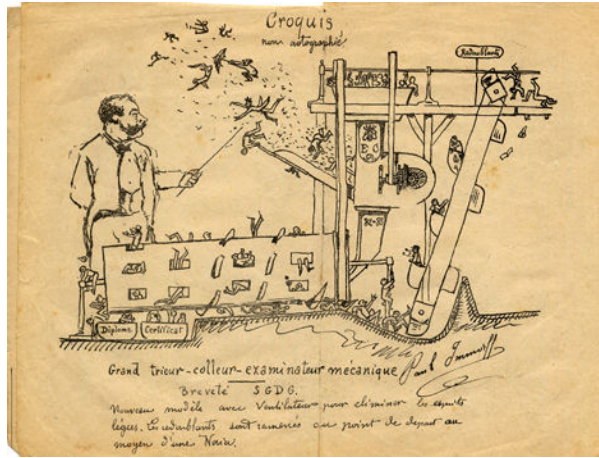 Croquis
non autographié.
Redoublants
Diplome Certificat
Grand trieur-colleur-examinateur mécanique
Paul
Breveté S.G.D.G.
Nouveau modèle avec Ventilateur pour eliminer les esprits
légers. Les redoublants sont ramenés au point de depart au
moyen d'une Noria.